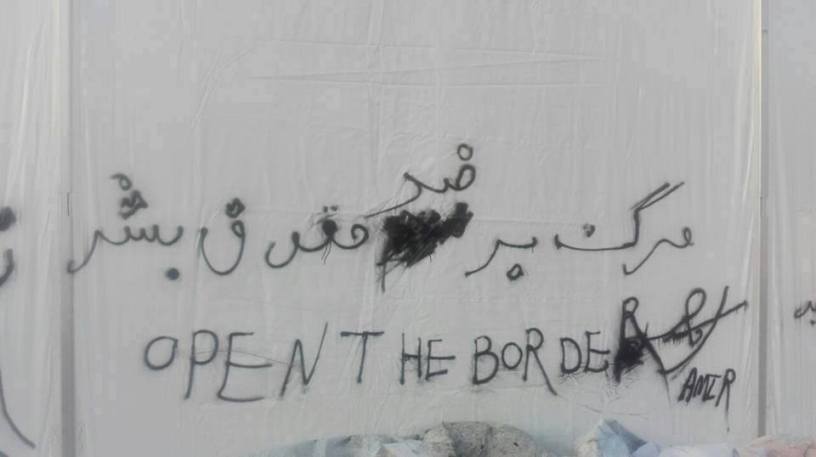 مرگ بر ضد حقوق بشر
OPEN THE BORDER
AMIR